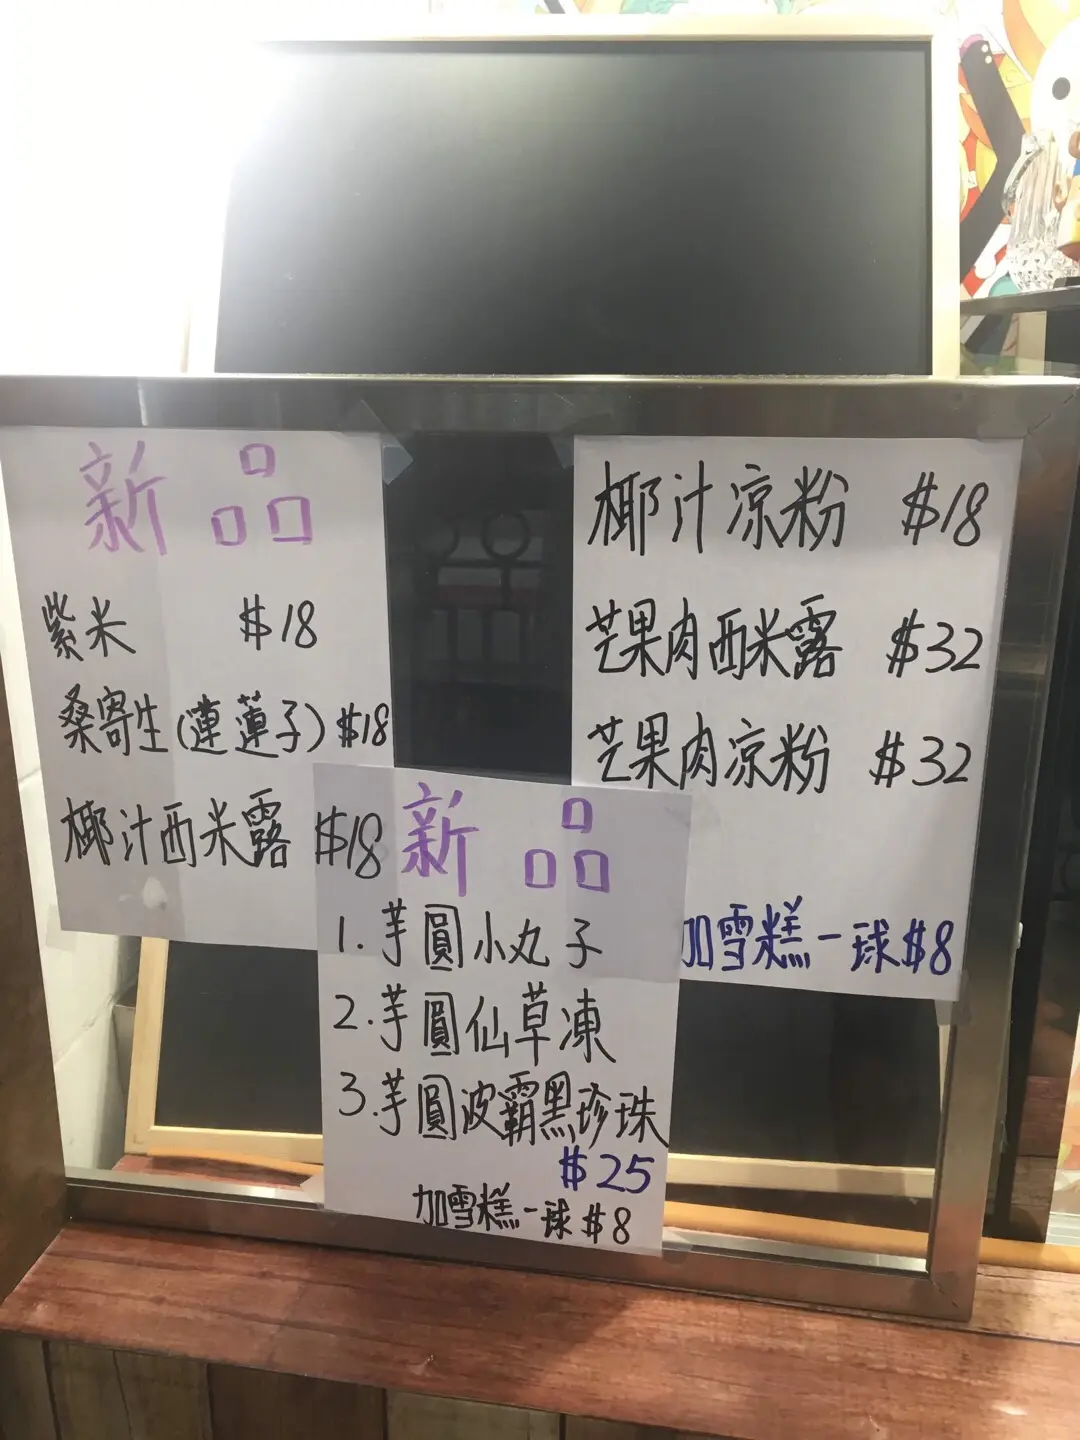 新品
紫米 $18
桑寄生(蓮蓮子) $18
椰汁西米露 $18
椰汁涼粉 $18
芒果肉西米露 $32
芒果肉涼粉 $32
加雪糕一球$8
新品
1.芋圓小丸子
2.芋圓仙草凍
3.芋圓波霸黑珍珠
$25
加雪糕一球$8